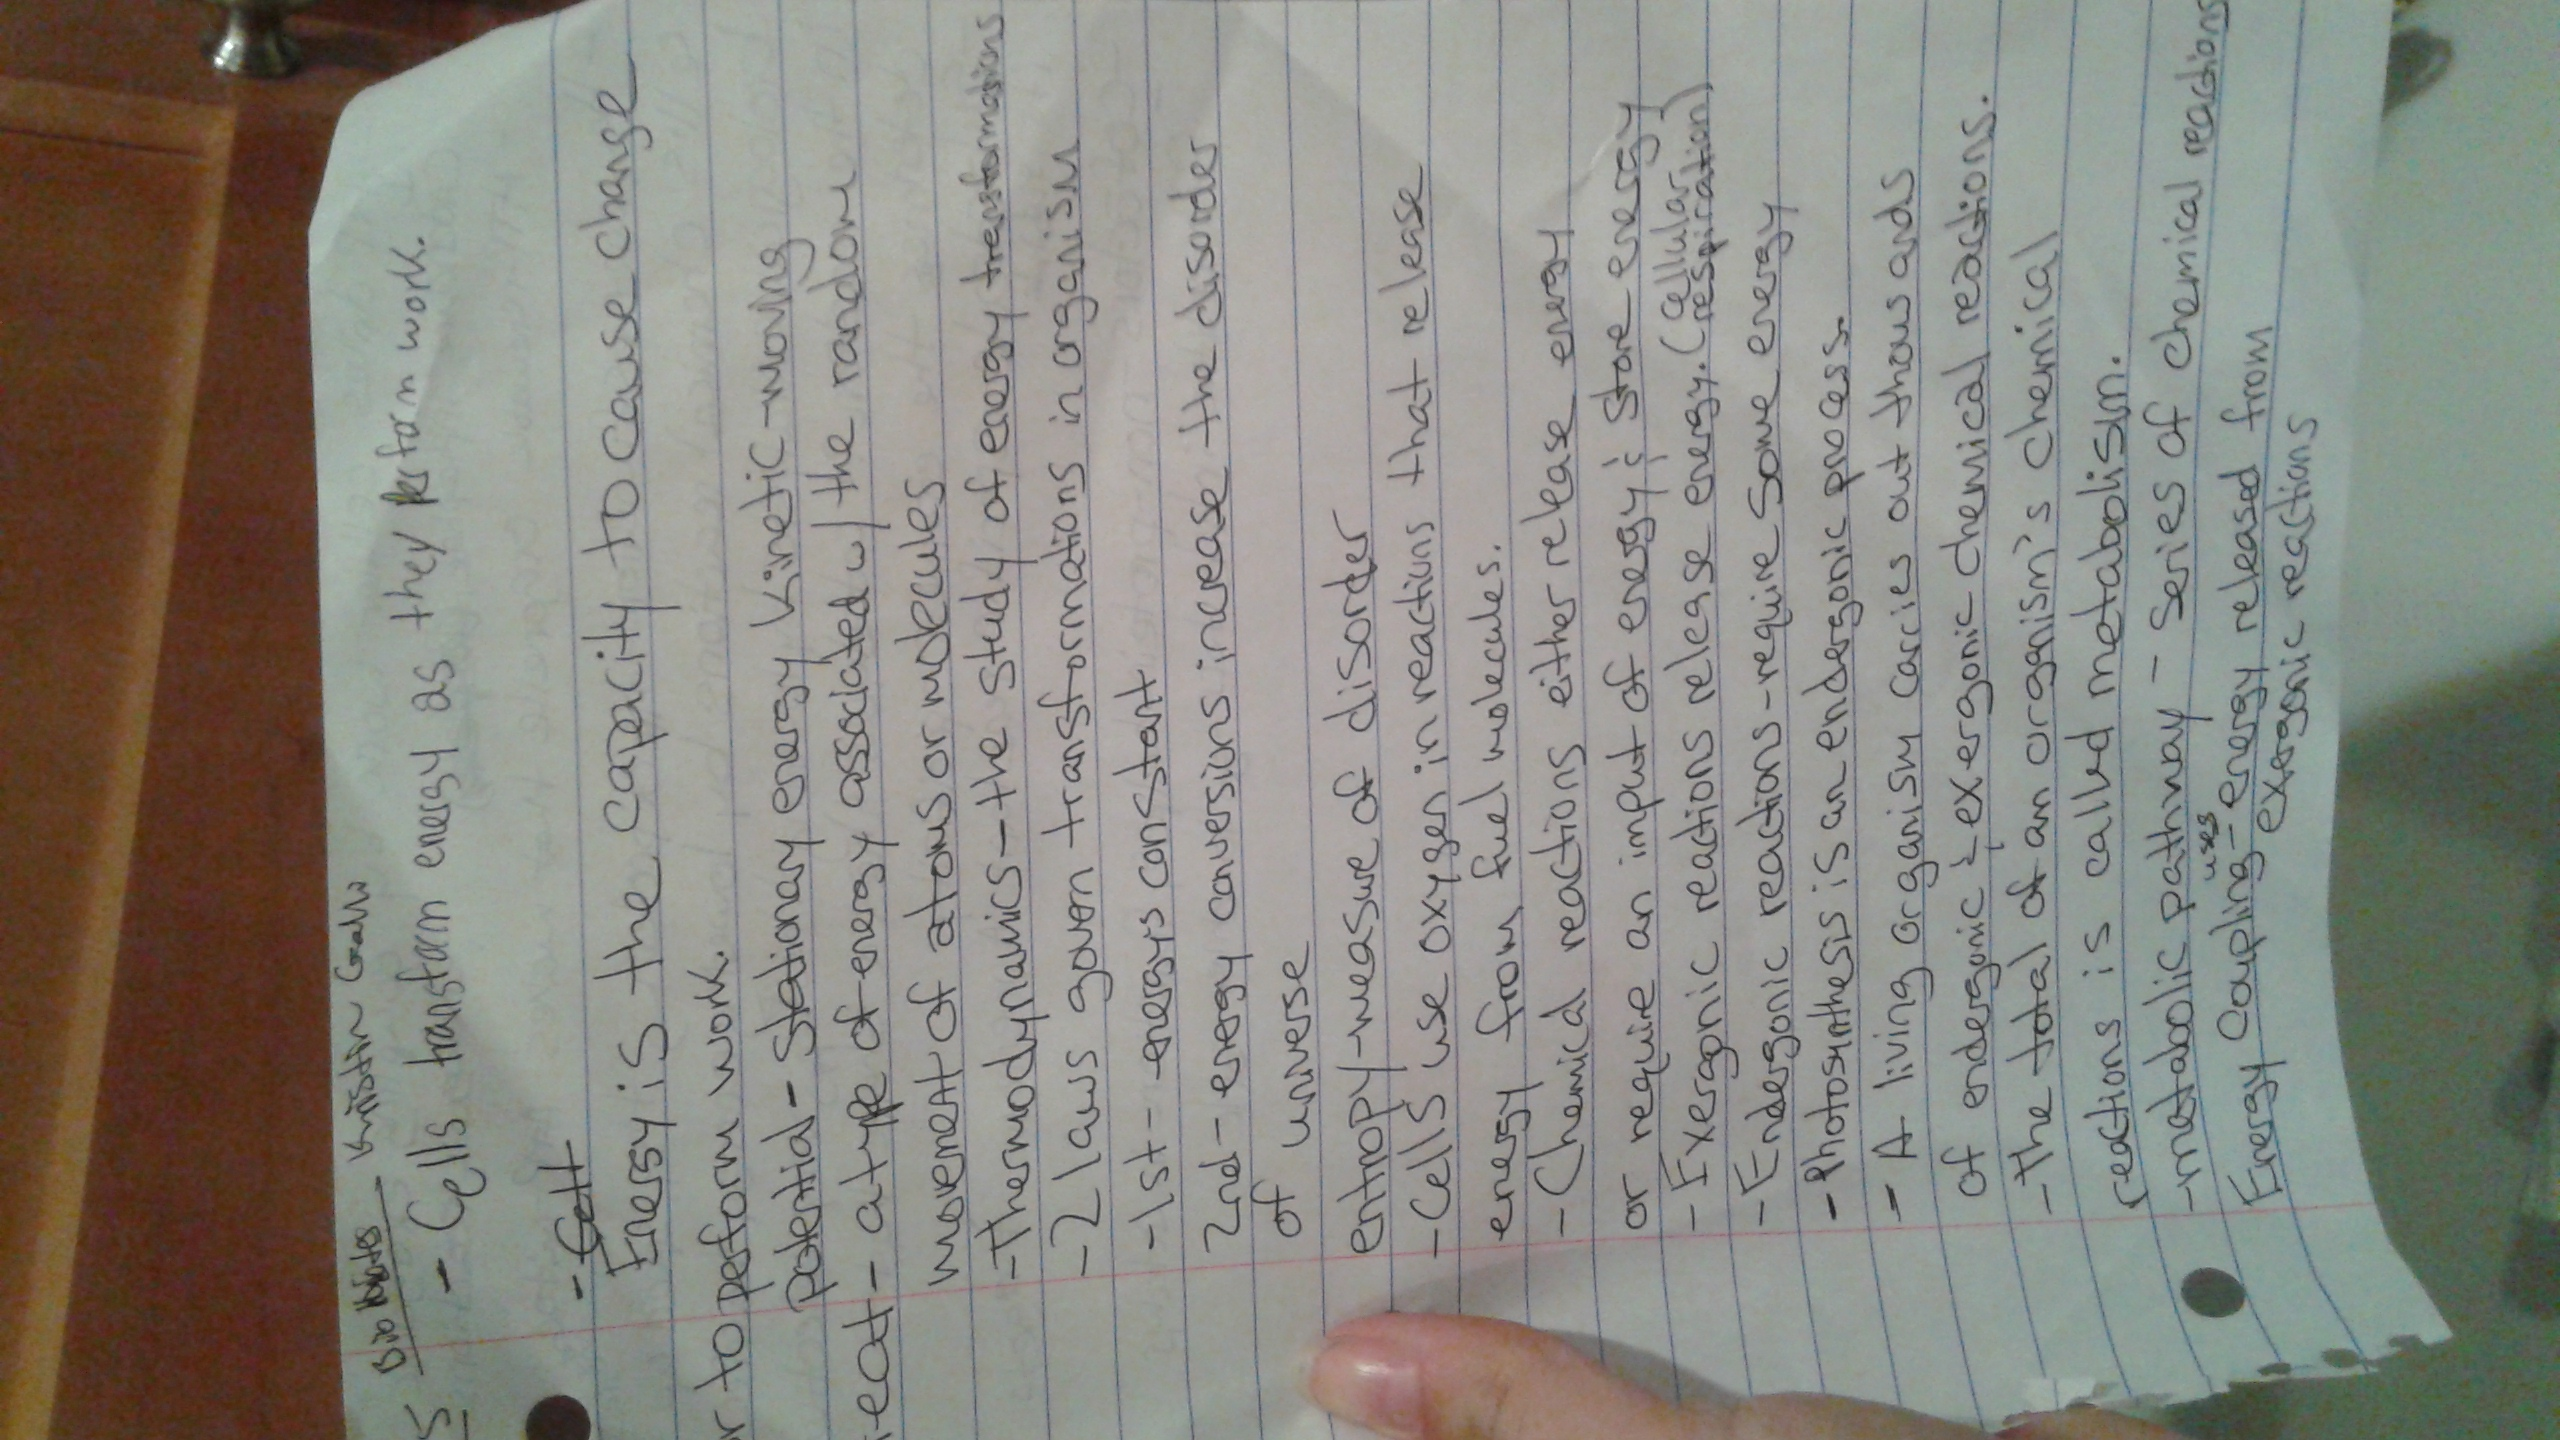 5 Bio Notes Kristin Gallo
- Cells transform energy as they perform work.
- Cell
Energy is the capacity to cause change
or to perform work.
potential - stationary energy kinetic - moving
heat - a type of energy associated w/ the random
movement of atoms or molecules
- Thermodynamics - the study of energy transformations
- 2 laws govern transformations in organism
- 1st - energys constant
2nd - energy conversions increase the disorder
of universe
entropy - measure of disorder
- Cells use oxygen in reactions that release
energy from fuel molecules.
- Chemical reactions either release energy
or require an input of energy & store energy
- Exergonic reactions release energy. (cellular respiration)
- Endergonic reactions - require some energy
- Photosynthesis is an endergonic process.
- A living organism carries out thousands
of endergonic & exergonic chemical reactions.
- The total of an organism's chemical
reactions is called metabolism.
- metabolic pathway - series of chemical reactions
Energy coupling - uses energy released from
exergonic reactions